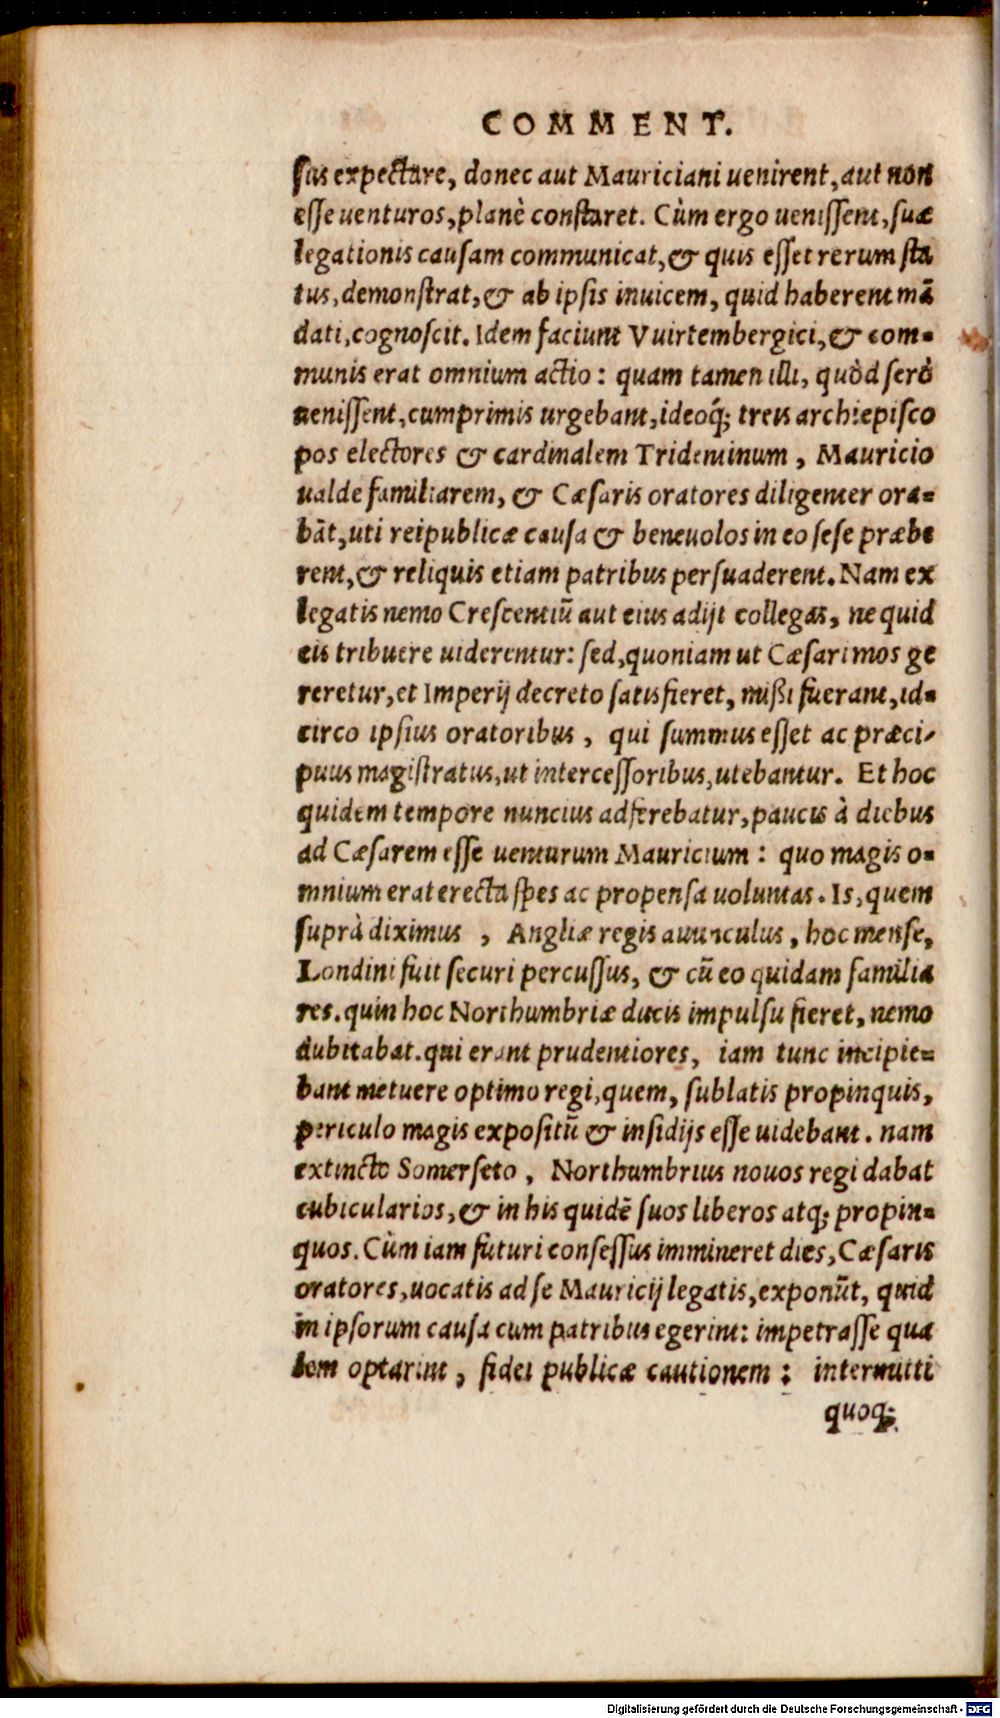 COMMENT.
sus expectare, donec aut Mauriciani uenirent, aut non
esse uenturos, planè constaret. Cùm ergo uenissent, suæ
legationis causam communicat, & quis esset rerum sta
tus, demonstrat, & ab ipsis inuicem, quid haberent mā
dati, cognoscit. Idem faciunt Vuirtembergici, & com-
munis erat omnium actio: quam tamen illi, quòd serò
uenissent, cumprimis urgebant, ideoq́; treis archiepisco
pos electores & cardinalem Tridentinum, Mauricio
ualde familiarem, & Cæsaris oratores diligenter ora-
bāt, uti reipublicæ causa & beneuolos in eo sese præbe
rent, & reliquis etiam patribus persuaderent. Nam ex
legatis nemo Crescentiū aut eius adijt collegas, ne quid
eis tribuere uiderentur: sed, quoniam ut Cæsari mos ge
reretur, et Imperij decreto satisfieret, mißi fuerant, id-
circo ipsius oratoribus, qui summus esset ac præci-
puus magistratus, ut intercessoribus, utebantur. Et hoc
quidem tempore nuncius adferebatur, paucis à diebus
ad Cæsarem esse uenturum Mauricium: quo magis o-
mnium erat erecta spes ac propensa uoluntas. Is, quem
suprà diximus, Angliæ regis auunculus, hoc mense,
Londini fuit securi percussus, & cū eo quidam familia
res. quin hoc Northumbriæ ducis impulsu fieret, nemo
dubitabat. qui erant prudentiores, iam tunc incipie-
bant metuere optimo regi, quem, sublatis propinquis,
periculo magis expositū & insidijs esse uidebant. nam
extincto Somerseto, Northumbrius nouos regi dabat
cubicularios, & in his quidē suos liberos atq; propin-
quos. Cùm iam futuri consessus immineret dies, Cæsaris
oratores, uocatis ad se Mauricij legatis, exponūt, quid
in ipsorum causa cum patribus egerint: impetrasse qua
lem optarint, fidei publicæ cautionem: intermitti
quoq;
Digitalisierung gefördert durch die Deutsche Forschungsgemeinschaft - DFG